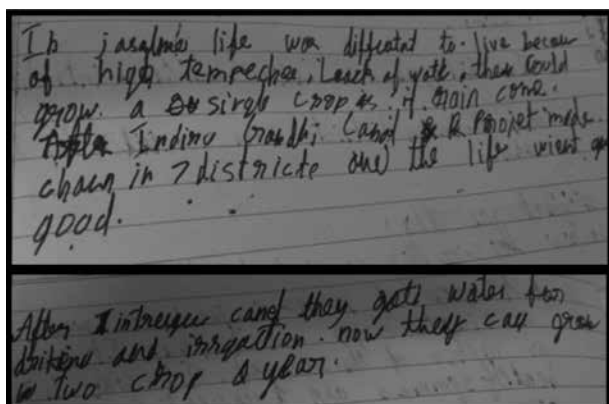 In jasalme life was diffcatat to live becau
of high tempecher. Leack of wate, they could
grow a single crop is if rain come.
Indinu Gandhi Canil & R Projet made
chaen in 7 districte and the life wient
good.
After intregue canel they gets water for
drikeng and irrgation. now they can grow
two crop a year.